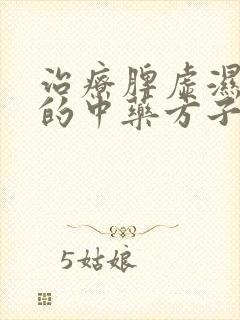 治療脾虛濕
的中藥方子
5姑娘